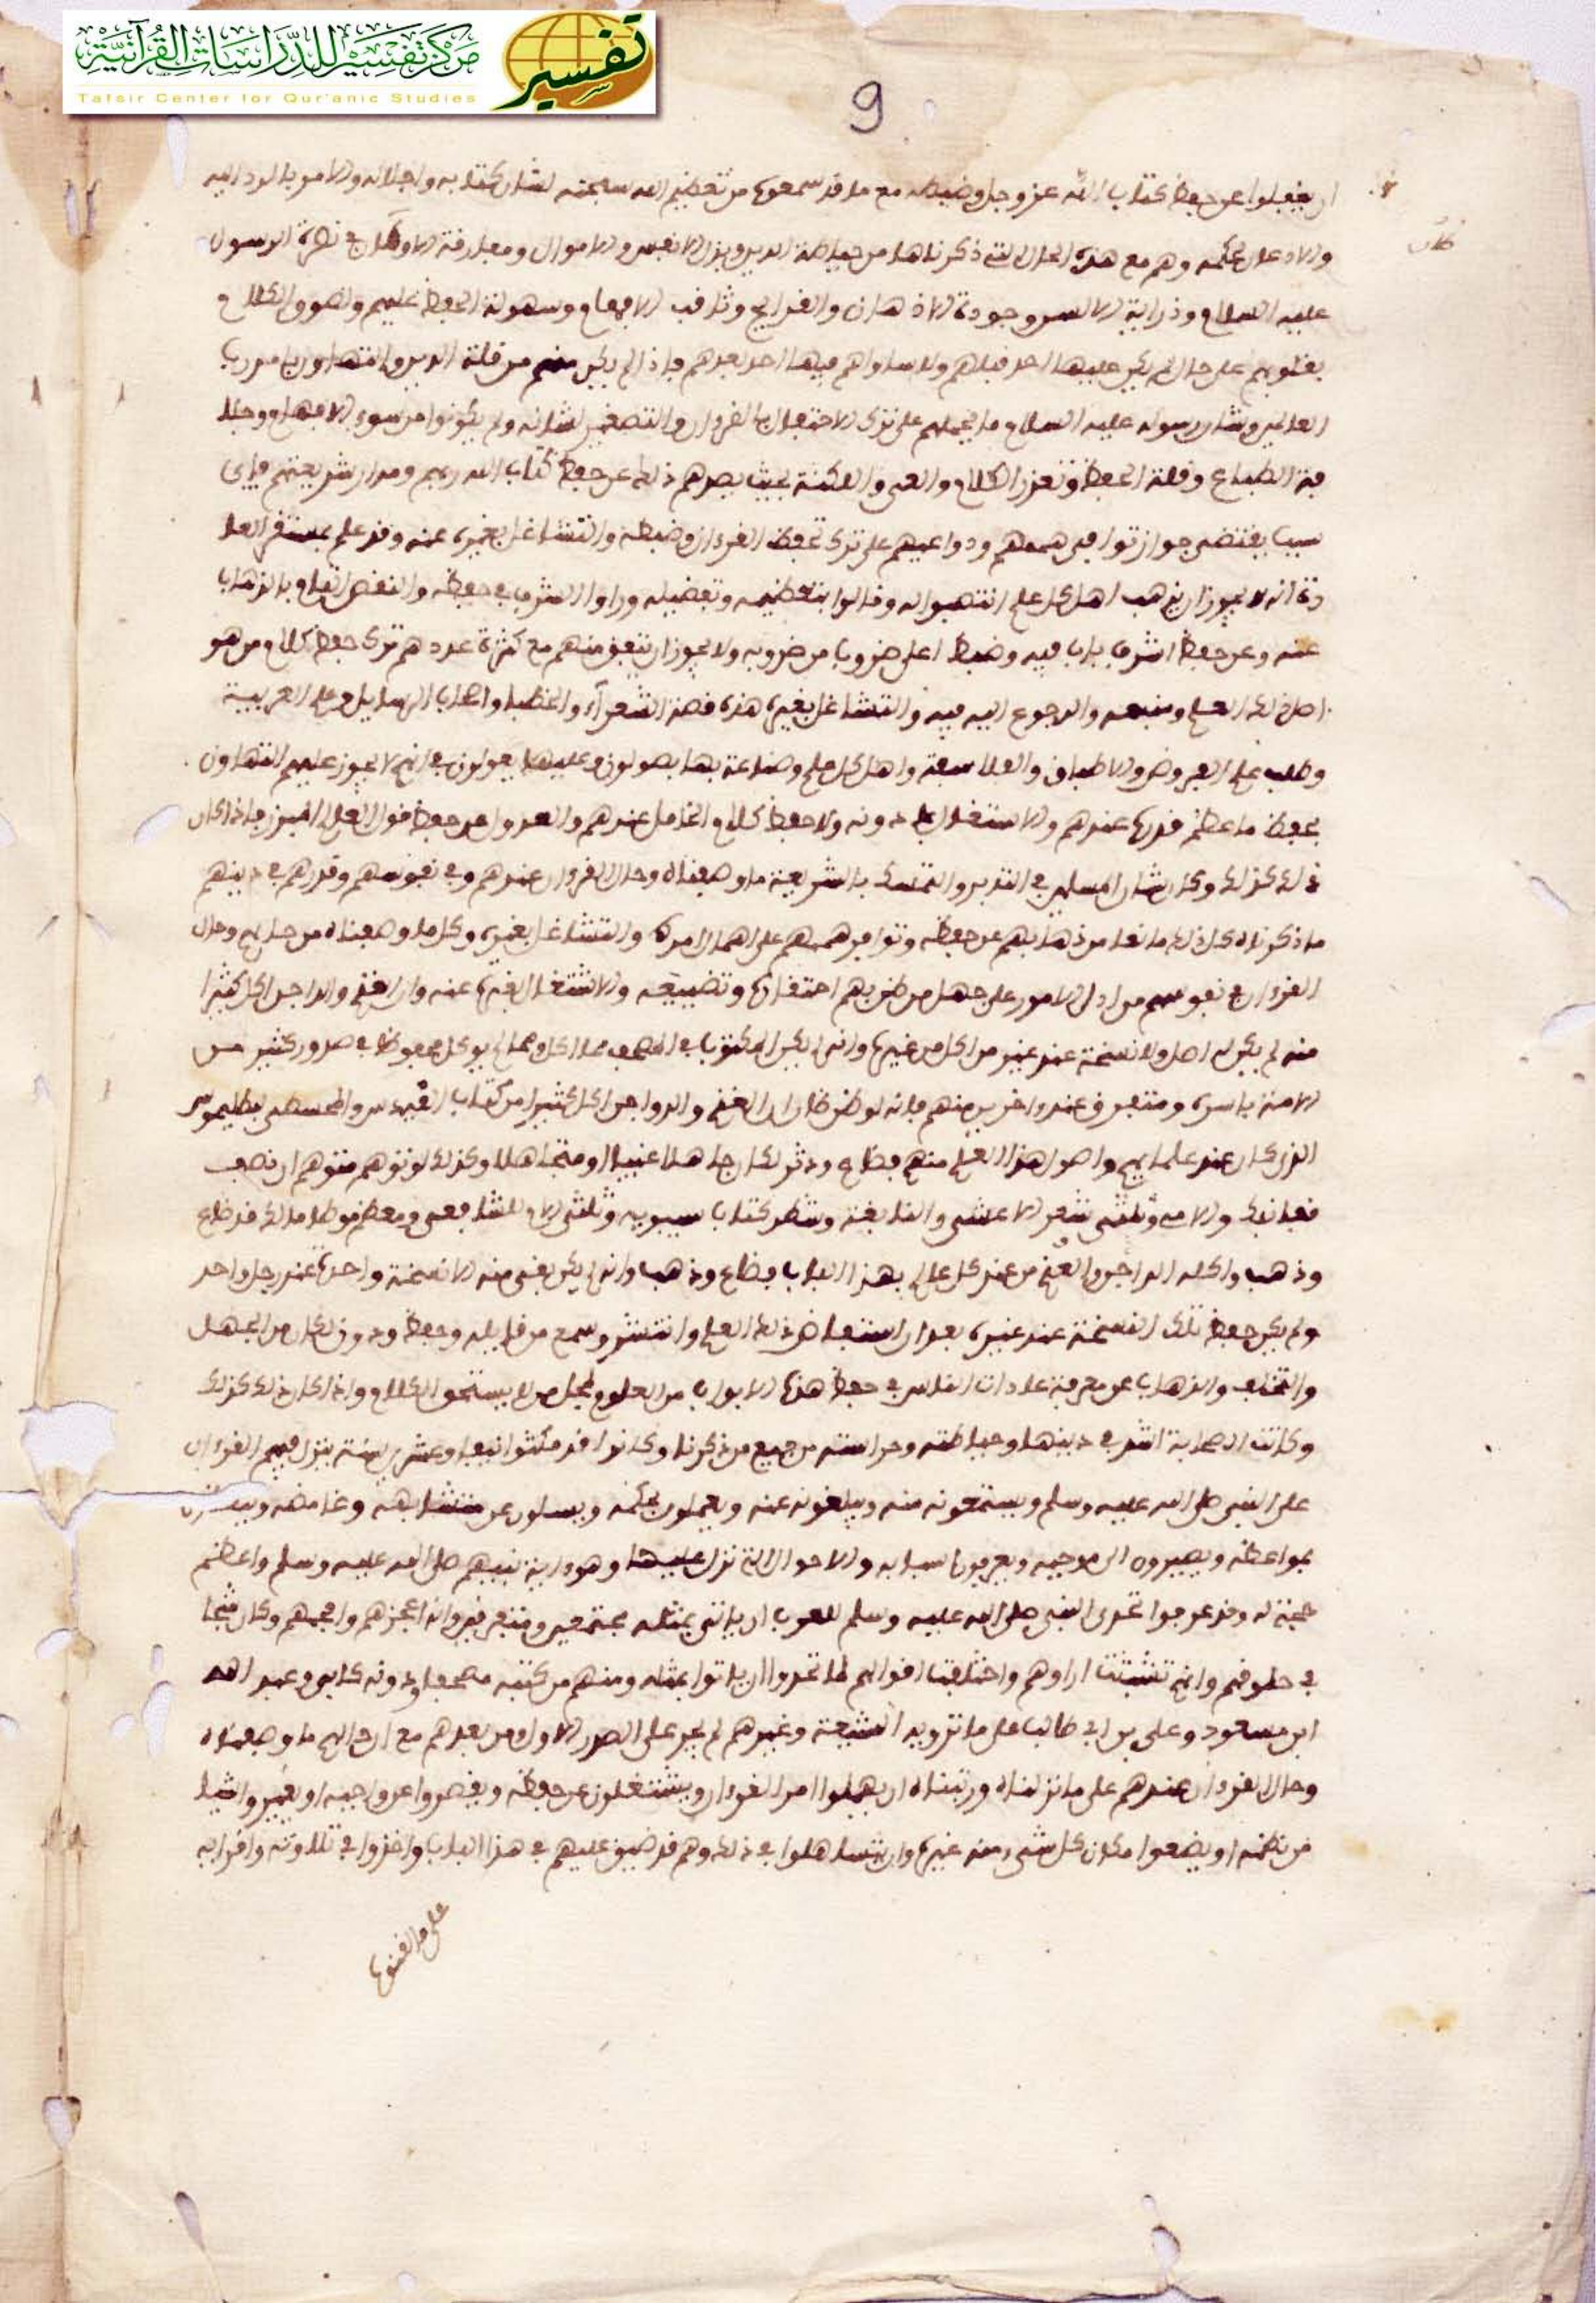 مركز تفسير للدراسات القرآنية
Tafsir Center for Qur'anic Studies
تفسير
9
ان يغفلوا عن حفظ كتاب الله عز وجل وضبطه مع ما قد سمعوه من تعظيم الله سبحنه لشان كتابه واجلاله والامر بالرد اليه
والاذعان لحكمه وهم مع هذه الحال التي ذكرناها من حياطة الدين وبذل الانفس والاموال ومفارقة الاوطان في نصرة الرسول
عليه السلام وذرابة الالسن وجودة الاذهان والقرايح وثاقب الافهام وسهولة الحفظ عليهم ولصوق الكلام
بقلوبهم على حال لم يكن عليها احد قبلهم ولا ساواهم فيها احد بعدهم فاذا لم يكن منهم من قلة الدين والتهاون بامر رب
العالمين وشان رسوله عليه السلام ما يحملهم على ترك الاحتفال بالقرءان والتصغير لشانه ولم يكونوا من سوء الافهام وجلا
فة الطباع وقلة الحفظ وتعذر الكلام والعي واللكنة بحيث يصدهم ذلك عن حفظ كتاب الله ربهم ومدار شريعتهم فاي
سبب يقتضي جواز توافي هممهم ودواعيهم على ترك تحفظ القرءان وضبطه والتشاغل بغيره عنه وقد علم بمستقر العا
دة انه لا يجوز ان يذهب اهل كل علم انتصبوا له وقالوا بتعظيمه وتفضيله وراوا الشرف في حفظه والنقص التام بالذهاب
عنه وعن حفظ اشرف باب فيه وضبط اعلى ضروب من ضروبه ولا يجوز ان يتفق منهم مع كثرة عددهم ترك حفظ كلام من هو
اصل ذلك العلم ومنبعه والرجوع اليه فيه والتشاغل بغيره هذه قصة الشعراء والخطباء واصحاب الرسايل وعلم العربية
وطلب علم العروض والاطباق والفلاسفة واهل كل علم وصناعة بها يصولون وعليها يعولون في انهم لا يجوز عليهم التهاون
بحفظ ما عظم قدره عندهم والاشتغال بما دونه ولا حفظ كلام الخامل عندهم والعدول عن حفظ قول العالم المبرز فاذا كان
ذلك كذلك وكان شان المسلمين في التدين والتمسك بالشريعة ما وصفناه وحال القرءان عندهم وفي نفوسهم وقدرهم في دينهم
ما ذكرناه كان ذلك مانعا من ذهابهم عن حفظه وتوافي هممهم على اهمال امره والتشاغل بغيره وكل ما وصفناه من حالهم وحال
القرءان في نفوسهم من ادل الامور على جهل من ظن بهم احتقاره وتضييعه والاشتغال بغيره عنه وان الغنم والداجن اكل كثيرا
منه لم يكن له اصل ولا نسخة عند غير من اكل من عنده وانه لم يكن المكتوب في الصحف مما اكل ومما لم يوكل محفوظا في صدور كثير من
الامة باسره ومتفرق عند اخرين منهم فانه لو ظن ظان ان الغنم والدواجن اكل كثيرا من كتاب اقليدس والمجسطي لبطليموس
الذي كان عند علمايهم واصول هذا العلم منهم فضاع ودثر لكان جاهلا غبيا او متجاهلا وكذلك لو توهم متوهم ان نصف
قفا نبك والامه وثلثي شعر الاعشى والنابغة وشطر كتاب سيبويه وثلثي الام للشافعي ومعظم موطا مالك قد ضاع
وذهب واكله الداجن والغنم من عند كل عالم بهذا الباب فضاع وذهب وانه لم يكن بقي منه الا نسخة واحدة عند رجل واحد
ولم يكن حفظ تلك النسخة عند غيره بعد ان استفاض ذلك العلم وانتشر وسمع من قايله وحفظ ودون لكان من الجهل
والتخلف والذهاب عن معرفة عادات الناس في حفظ هذه الابواب من العلوم بمحل من لا يستحق الكلام واذا كان ذلك كذلك
وكانت الصحابة اشد في دينها وحياطته وحراسته من جميع من ذكرنا وكانوا قد مكثوا نيفا وعشرين سنة ينزل فيهم القرءان
على النبي صلى الله عليه وسلم ويستمعونه منه ويبلغونه عنه ويعملون بحكمه ويسلون عن متشابهه وغامضه
بمواعظه ويصيرون الى موجبه ويعرفون اسبابه والاحوال التي نزل عليها وهو اية نبيهم صلى الله عليه وسلم واعظم
حجة له وقد عرفوا تحدي النبي صلى الله عليه وسلم للعرب ان ياتي بمثله مجتمعين ومتفرقين وانه اعجزهم وافحمهم وكان شجا
في حلوقهم وانهم تشتتت اراوهم واختلفت اقوالهم لما تحدوا ان ياتوا بمثله ومنهم من كتبه مصحفا ودونه كابي وعبد الله
ابن مسعود وعلي بن ابي طالب على ما ترويه الشيعة وغيرهم لم يجز على الصدر الاول ومن بعدهم مع ان حالهم ما وصفناه
وحال القرءان عندهم على ما نزلناه ورتبناه ان يهملوا امر القرءان ويشتغلون عن حفظه ويقصروا عن واجبه او يغيروا شيا
من نظمه او يضعوا مكان كل شيء منه غيره وان يتساهلوا في ذلك وهم قد ضيق عليهم في هذا الباب واخذوا في تلاوته واقرايه
على ما لقنوه